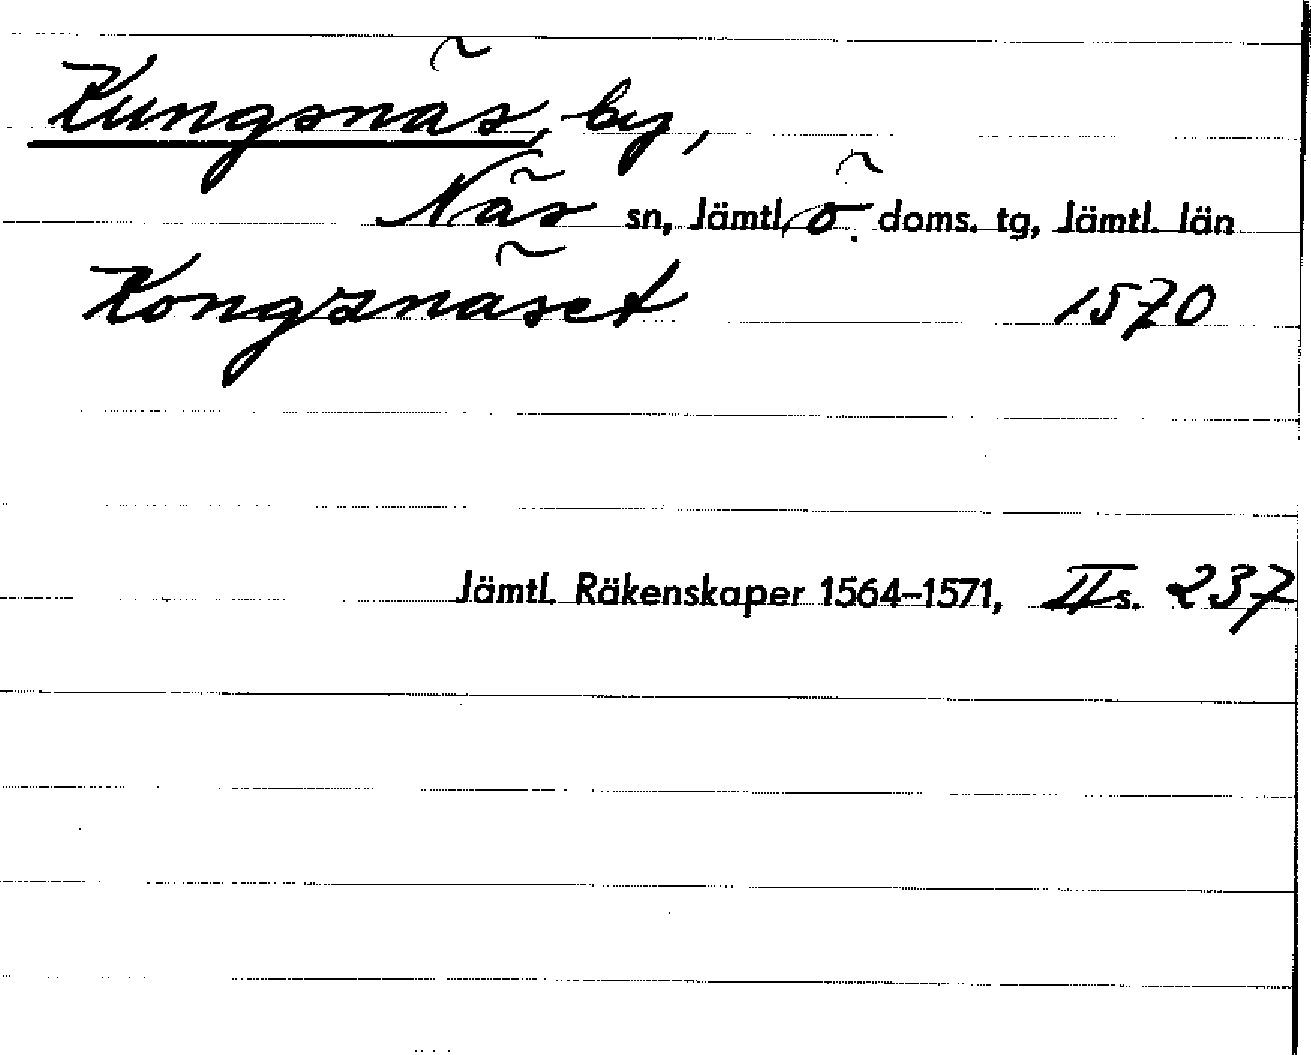 Kungsnäs, by,
Näs sn, Jämtl. ö. doms. tg, Jämtl. län
Kongsnäset 1570
Jämtl. Räkenskaper 1564–1571, II s. 237